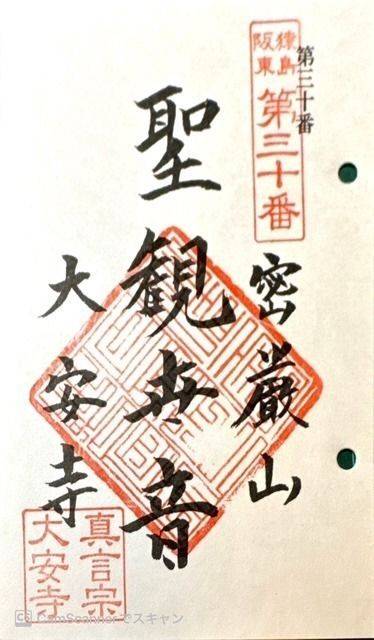 第三十番
猿島
阪東
第三十番
密巌山
聖観世音
大安寺
真言宗
大安寺
CS CamScannerでスキャン